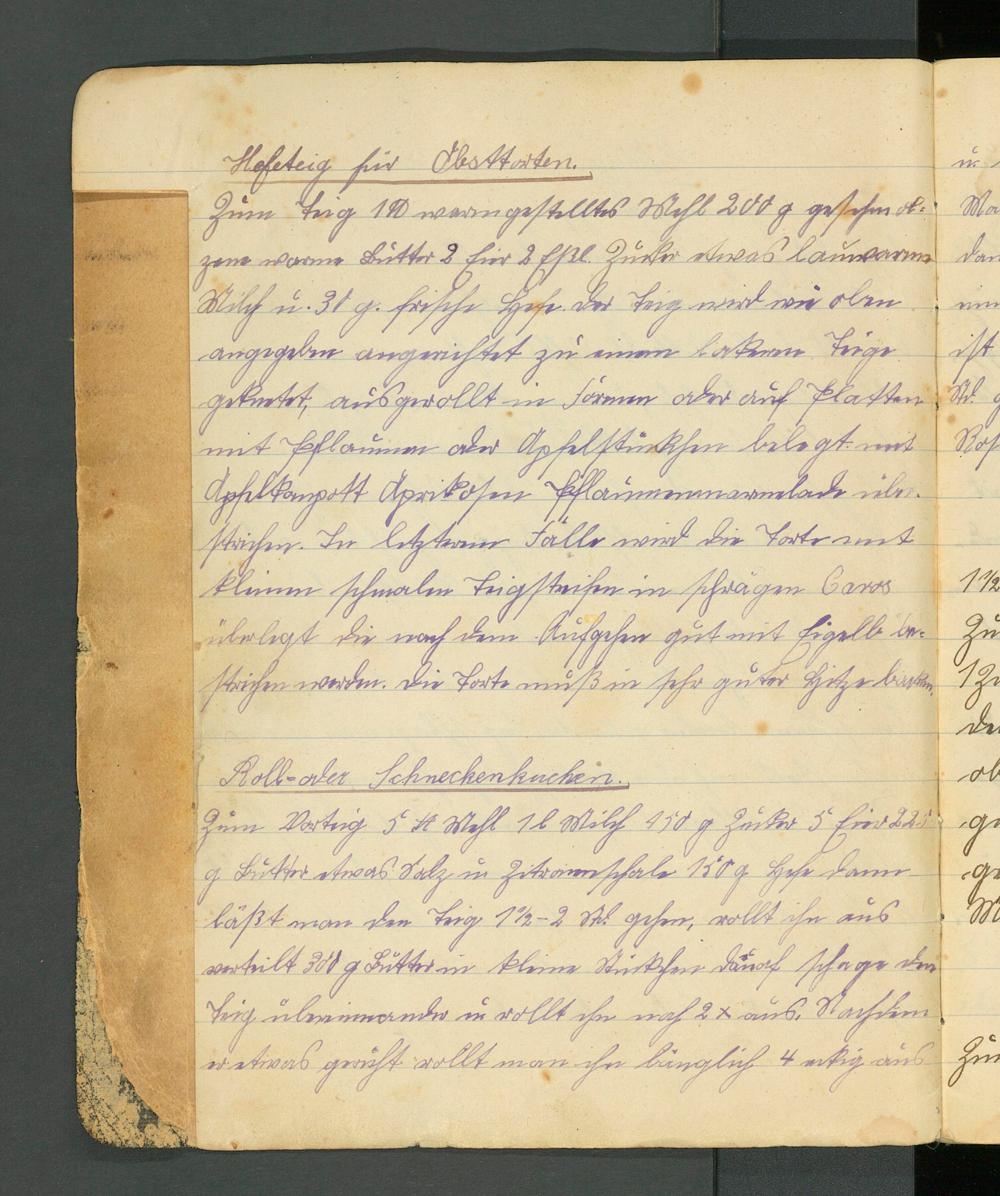 Hefeteig für Obsttorten.
Zum Teig 1 ℔ warmgestelltes Mehl 200 g geschmol-
zene warme Butter 2 Eier 2 Eßl. Zucker etwas lauwarme
Milch u. 30 g. frische Hefe der Teig wird wie oben
angegeben angerichtet zu einem lakeren Teige
geknetet, ausgerollt in Formen oder auf Platten
mit Pflaumen oder Apfelstückchen belegt mit
Apfelkompott Aprikosen Pflaumenmarmelade über-
strichen. In letzterem Falle wird die Torte mit
kleinen schmalen Teigstreifen in schrägen Caros
überlegt die nach dem Aufgehen gut mit Eigelb be-
strichen werden. Die Torte muß in sehr guter Hitze backen.
Roll- oder Schneckenkuchen.
Zum Vorteig 5 ℔ Mehl 1 l Milch 450 g Zucker 5 Eier 225
g Butter etwas Salz u Zitronenschale 150 g Hefe dann
läßt man den Teig 1½-2 Std. gehen, rollt ihn aus
verteilt 300 g Butter in kleine Stückchen darauf schage den
Teig übereinander u rollt ihn noch 2 x aus. Nachdem
er etwas geruht rollt man ihn länglich 4 eckig aus
u.
ist
Std.
1½
Zu